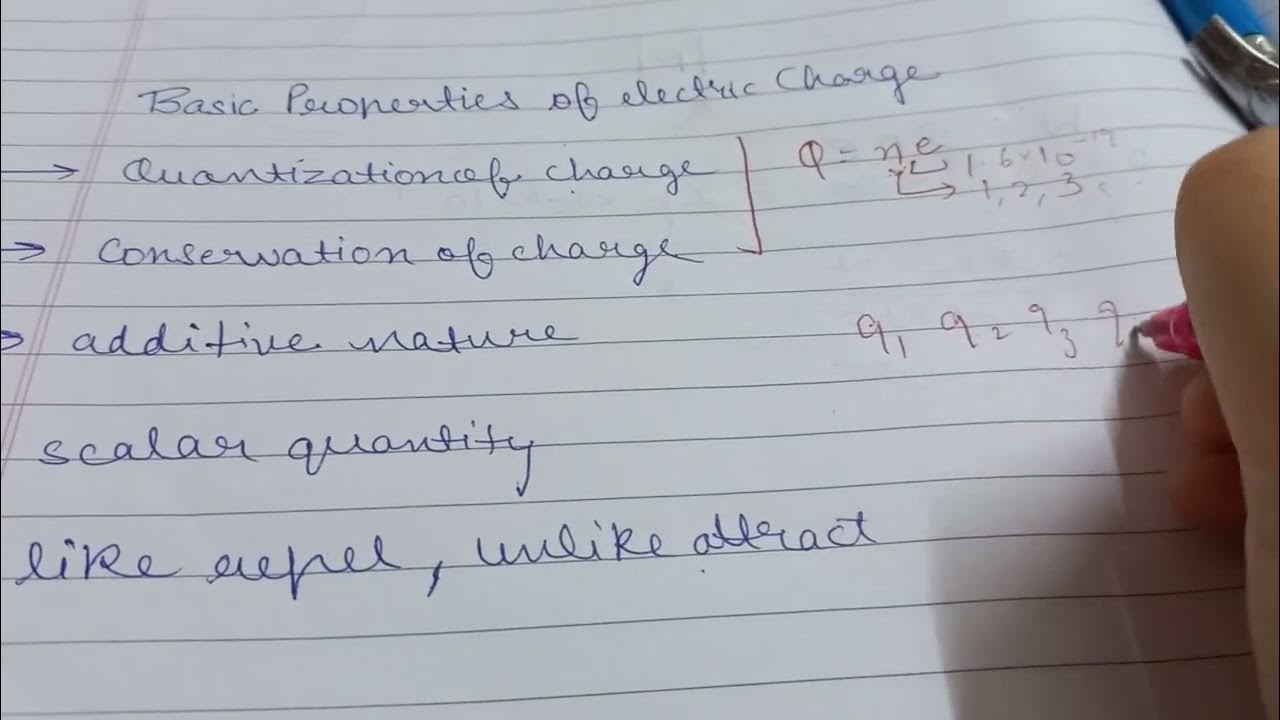 Basic Properties of electric Charge
→ Quantization of charge Q = ne
1.6×10⁻¹⁹
1, 2, 3
→ Conservation of charge
→ additive nature q₁ q₂ q₃ q
scalar quantity
like repel, unlike attract